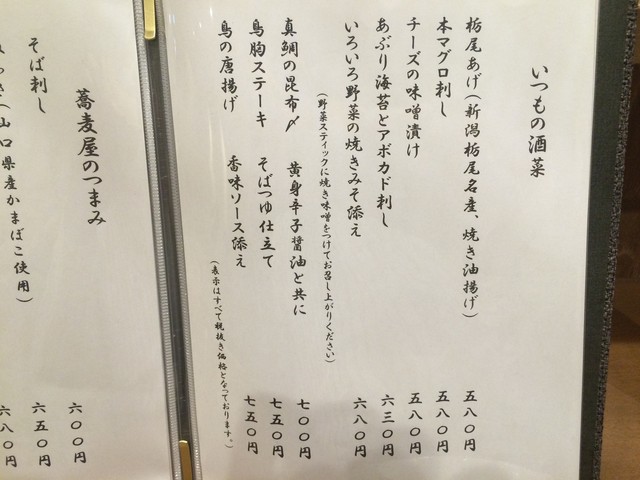 いつもの酒菜
栃尾あげ(新潟栃尾名産、焼き油揚げ) 五八〇円
本マグロ刺し 五八〇円
チーズの味噌漬け 五八〇円
あぶり海苔とアボカド刺し 六三〇円
いろいろ野菜の焼きみそ添え 六八〇円
(野菜スティックに焼き味噌をつけてお召し上がりください)
真鯛の昆布〆 黄身辛子醤油と共に 七〇〇円
鳥胸ステーキ そばつゆ仕立て 七五〇円
鳥の唐揚げ 香味ソース添え 七五〇円
(表示はすべて税抜き価格となっております。)
蕎麦屋のつまみ
六〇〇円
そば刺し 六五〇円
(山口県産かまぼこ使用) 六八〇円